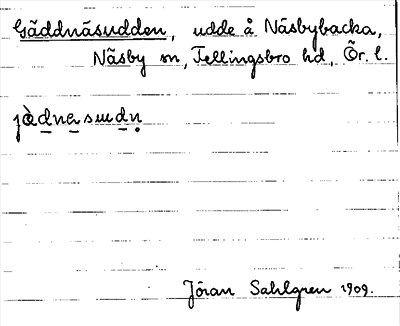 Gäddnäsudden, udde å Näsbybacka,
Näsby sn, Fellingsbro hd, Ör. l.
jὰdnesɯdn̥
Jöran Sahlgren 1909.